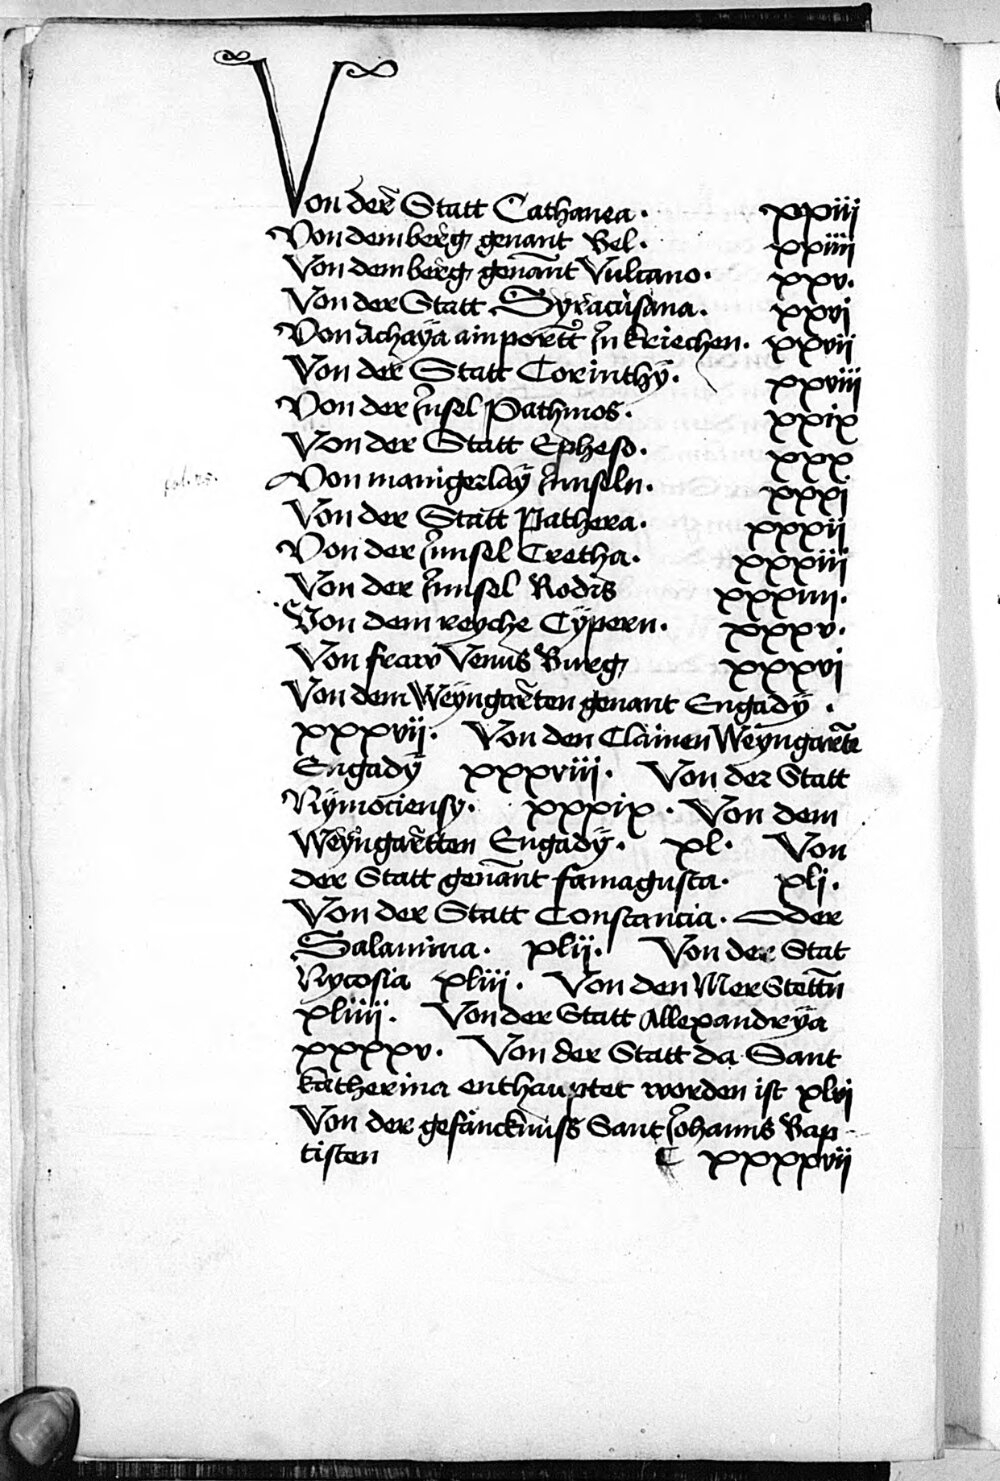 Von der Statt Cathanea · xxiii
Von dem berg genant Bel · xxiiii
Von dem berg genant Vulcano · xxv ·
Von der Statt Syracusana · xxvi
Von Achaÿa ain portt In kriechen · xxvii
Von der Statt Corinthÿ · xxviii
Von der Insel Pathmos · xxix
Von der Statt Epheso · xxx
Von manigerlaÿ Innseln · xxxi
Von der Statt Pathera · xxxii
Von der Innsel Cretha · xxxiii
Von der Innsel Rodis xxxiiii ·
Von dem reyche Cÿpern · xxxv ·
Von fraw Venus Burg xxxvi
Von dem Weÿngartten genant Engadÿ ·
xxxvii · Von den Clainen Weÿngartten
Engadÿ xxxviii · Von der Statt
Nÿmociensy · xxxix · Von dem
Weÿngartten Engadÿ · xl · Von
der Statt genant famagusta · xli ·
Von der Statt Constancia · Oder
Salamina · xlii · Von der Stat
Nycosia xliii · Von den Mer Stettn
xliiii · Von der Statt Allexandrÿa
xxxxv · Von der Statt da Sant
katherina enthauptet worden ist xlvi
Von der gefäncknuss Sant Johanns Bap
tisten xxxxvii